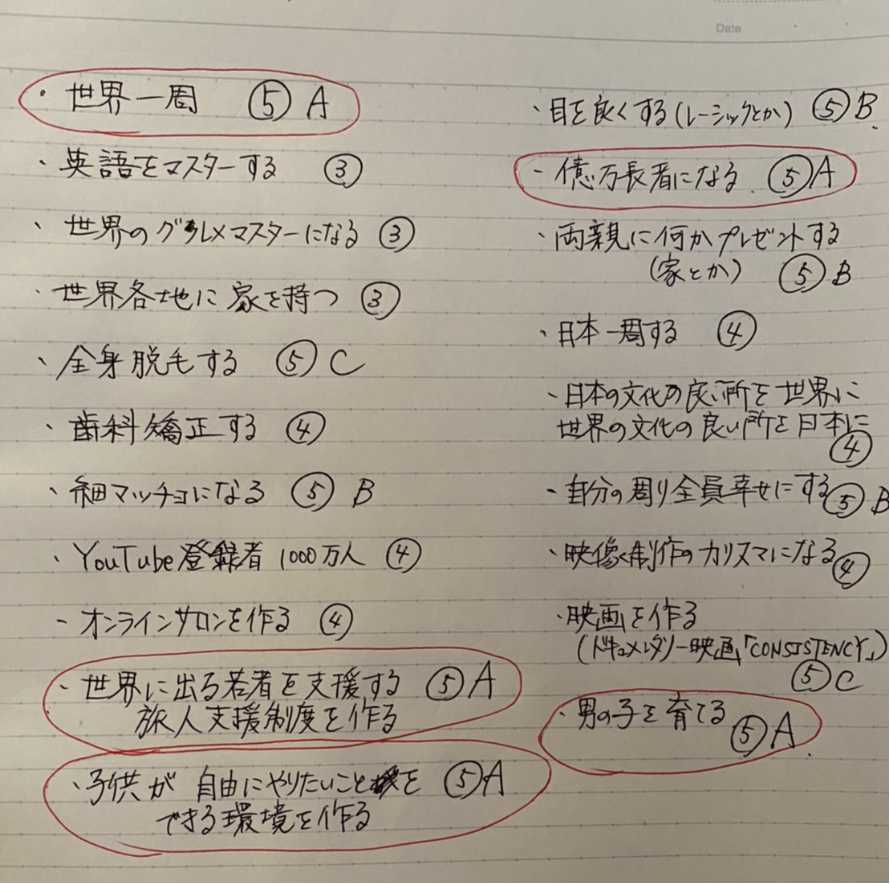 Date
・世界一周 ⑤ A
・英語をマスターする ③
・世界のグルメマスターになる ③
・世界各地に家を持つ ③
・全身脱毛する ⑤ C
・歯科矯正する ④
・細マッチョになる ⑤ B
・YouTube登録者 1000万人 ④
・オンラインサロンを作る ④
・世界に出る若者を支援する ⑤ A
旅人支援制度を作る
・子供が自由にやりたいことを ⑤ A
できる環境を作る
・目を良くする(レーシックとか) ⑤ B
・億万長者になる ⑤ A
・両親に何かプレゼントする
(家とか) ⑤ B
・日本一周する ④
・日本の文化の良い所を世界に
世界の文化の良い所を日本に
④
・自分の周り全員幸せにする ⑤ B
・映像制作のカリスマになる ④
・映画を作る
(ドキュメンタリー映画「CONSISTENCY」)
⑤ C
・男の子を育てる
⑤ A